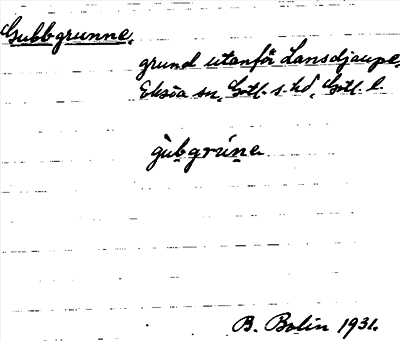 Gubbgrunne,
grund utanför Lansdjaupe,
Eksta sn, Gotl. s. hd, Gotl. l.
gùbgrúne
B. Bolin 1931.